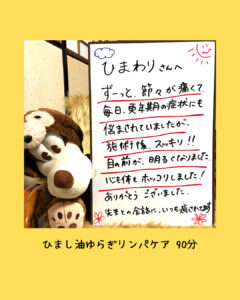 ひまわりさんへ
ずーっと、節々が痛くて
毎日、更年期の症状にも
悩まされていましたが、
施術後、スッキリ!!
目の前が、明るくなりました。
心も体もホッコリしました!
ありがとうございました。
先生との会話に、いつも癒されてます
ひまし油ゆらぎリンパケア 90分